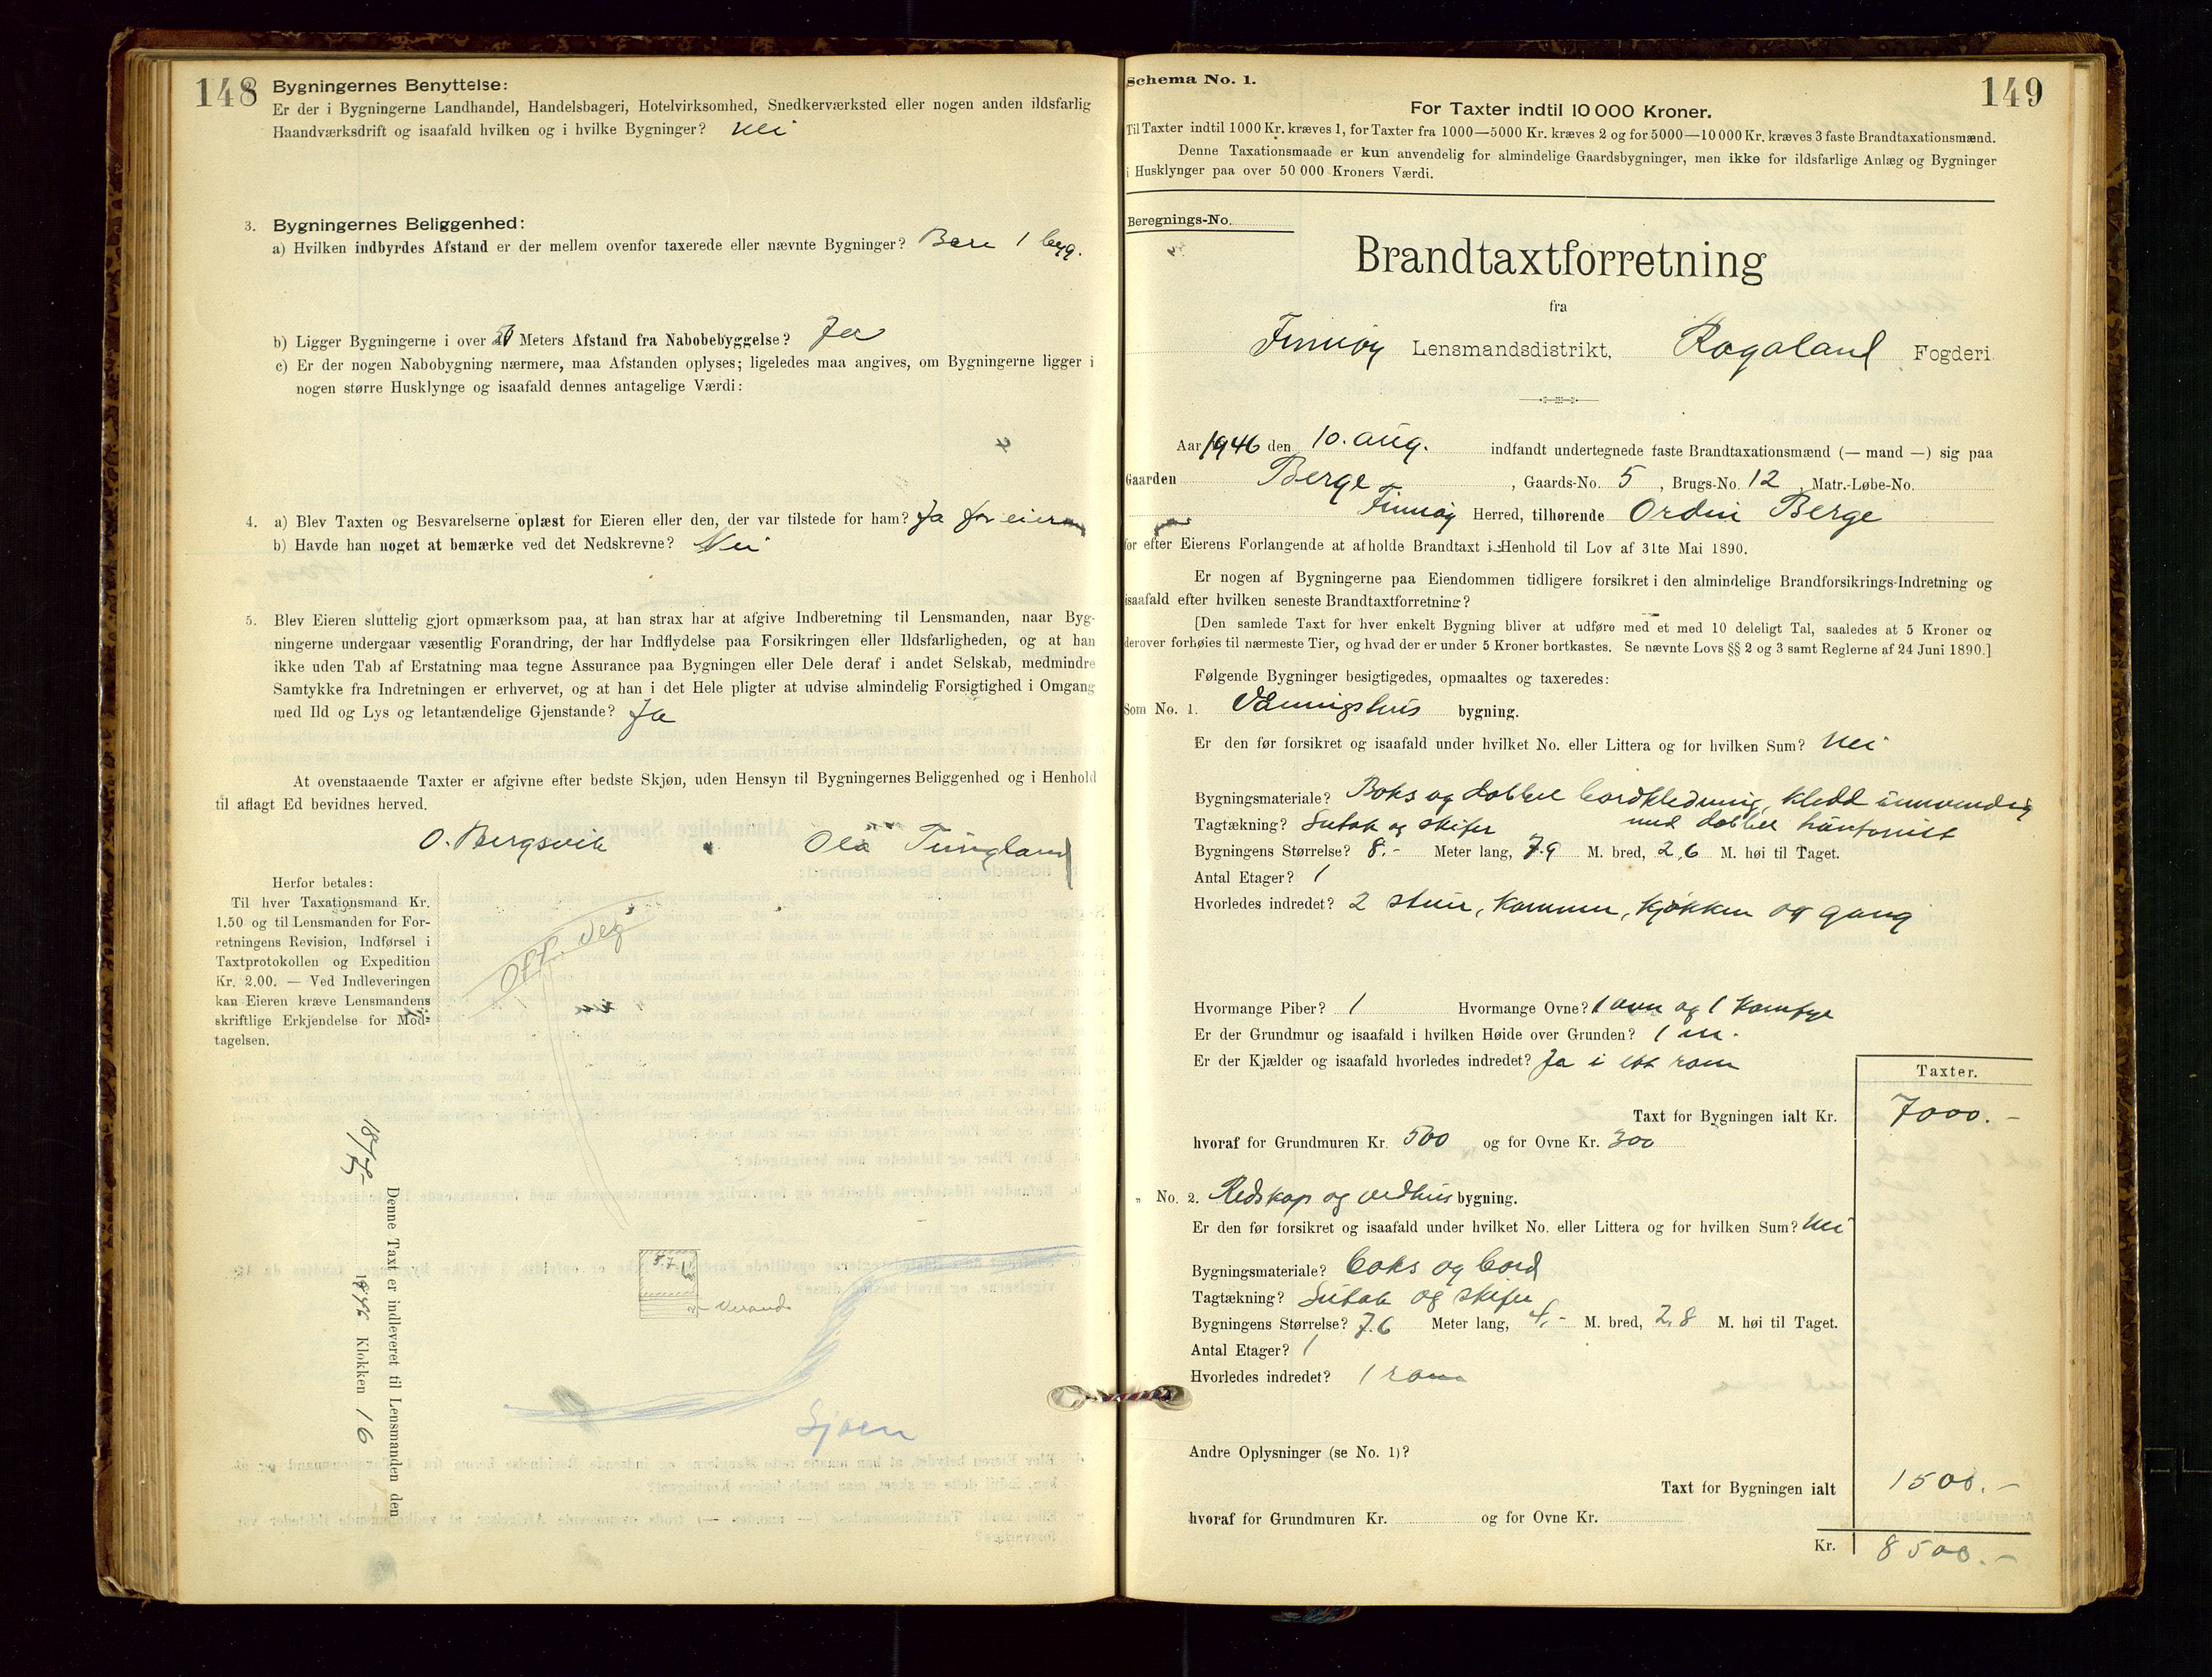 148
Bygningernes Benyttelse:
Er der i Bygningerne Landhandel, Handelsbageri, Hotelvirksomhed, Snedkerværksted eller nogen anden ildsfarlig
Haandværksdrift og isaafald hvilken og i hvilke Bygninger? Nei
3. Bygningernes Beliggenhed:
a) Hvilken indbyrdes Afstand er der mellem ovenfor taxerede eller nævnte Bygninger? Bare 1 bygg.
b) Ligger Bygningerne i over Meters Afstand fra Nabobebyggelse? Ja
c) Er der nogen Nabobygning nærmere, maa Afstanden oplyses; ligeledes maa angives, om Bygningerne ligger i
nogen større Husklynge og isaafald dennes antagelige Værdi:
4. a) Blev Taxten og Besvarelserne oplæst for Eieren eller den, der var tilstede for ham? Ja for eieren
b) Havde han noget at bemærke ved det Nedskrevne? Nei
5. Blev Eieren sluttelig gjort opmærksom paa, at han strax har at afgive Indberetning til Lensmanden, naar Byg-
ningerne undergaar væsentlig Forandring, der har Indflydelse paa Forsikringen eller Ildsfarligheden, og at han
ikke uden Tab af Erstatning maa tegne Assurance paa Bygningen eller Dele deraf i andet Selskab, medmindre
Samtykke fra Indretningen er erhvervet, og at han i det Hele pligter at udvise almindelig Forsigtighed i Omgang
med Ild og Lys og letantændelige Gjenstande? Ja
At ovenstaaende Taxter er afgivne efter bedste Skjøn, uden Hensyn til Bygningernes Beliggenhed og i Henhold
til aflagt Ed bevidnes herved.
O. Bergsvik Ola Tungland
Herfor betales:
Til hver Taxationsmand Kr.
1.50 og til Lensmanden for For-
retningens Revision, Indførsel i
Taxtprotokollen og Expedition
Kr. 2.00. — Ved Indleveringen
kan Eieren kræve Lensmandens
skriftlige Erkjendelse for Mod-
tagelsen.
Off. veg
Denne Taxt er indleveret til Lensmanden den
1946 Klokken 16
Veranda
Sjøen
Schema No. 1.
149
For Taxter indtil 10 000 Kroner.
Til Taxter indtil 1000 Kr. kræves 1, for Taxter fra 1000—5000 Kr. kræves 2 og for 5000—10 000 Kr. kræves 3 faste Brandtaxationsmænd.
Denne Taxationsmaade er kun anvendelig for almindelige Gaardsbygninger, men ikke for ildsfarlige Anlæg og Bygninger
i Husklynger paa over 50 000 Kroners Værdi.
Beregnings-No.
Brandtaxtforretning
fra
Finnøy Lensmandsdistrikt, Rogaland Fogderi
Aar 1946 den 10. aug. indfandt undertegnede faste Brandtaxationsmænd (— mand —) sig paa
Gaarden Berge, Gaards-No. 5, Brugs-No. 12, Matr.-Løbe-No.
Finnøy Herred, tilhørende Ordin Berge
for efter Eierens Forlangende at afholde Brandtaxt i Henhold til Lov af 31te Mai 1890.
Er nogen af Bygningerne paa Eiendommen tidligere forsikret i den almindelige Brandforsikrings-Indretning og
isaafald efter hvilken seneste Brandtaxtforretning?
[Den samlede Taxt for hver enkelt Bygning bliver at udføre med et med 10 deleligt Tal, saaledes at 5 Kroner og
derover forhøies til nærmeste Tier, og hvad der er under 5 Kroner bortkastes. Se nævnte Lovs §§ 2 og 3 samt Reglerne af 24 Juni 1890.]
Følgende Bygninger besigtigedes, opmaaltes og taxeredes:
Som No. 1. Våningshus bygning.
Er den før forsikret og isaafald under hvilket No. eller Littera og for hvilken Sum? Nei
Bygningsmateriale? Boks og dobbel bordkledning, kledd innvendig
med dobbel
Tagtækning? Sutak og skifer
Bygningens Størrelse? 8.- Meter lang, 7.9 M. bred, 2,6 M. høi til Taget.
Antal Etager? 1
Hvorledes indredet? 2 stuer, kammer, kjøkken og gang
Hvormange Piber? 1 Hvormange Ovne? 1 ovn og 1 komfyr
Er der Grundmur og isaafald i hvilken Høide over Grunden? 1 m.
Er der Kjælder og isaafald hvorledes indredet? Ja i ett rom
Taxter.
Taxt for Bygningen ialt Kr. 7000.-
hvoraf for Grundmuren Kr. 500 og for Ovne Kr. 300
" No. 2. Redskap og vedhus bygning.
Er den før forsikret og isaafald under hvilket No. eller Littera og for hvilken Sum? Nei
Bygningsmateriale? boks og bord
Tagtækning? Sutak og skifer
Bygningens Størrelse? 7.6 Meter lang, 4.- M. bred, 2,8 M. høi til Taget.
Antal Etager? 1
Hvorledes indredet? 1 rom
Andre Oplysninger (se No. 1)?
Taxt for Bygningen ialt 1500.-
hvoraf for Grundmuren Kr. og for Ovne Kr.
Kr. 8500.-